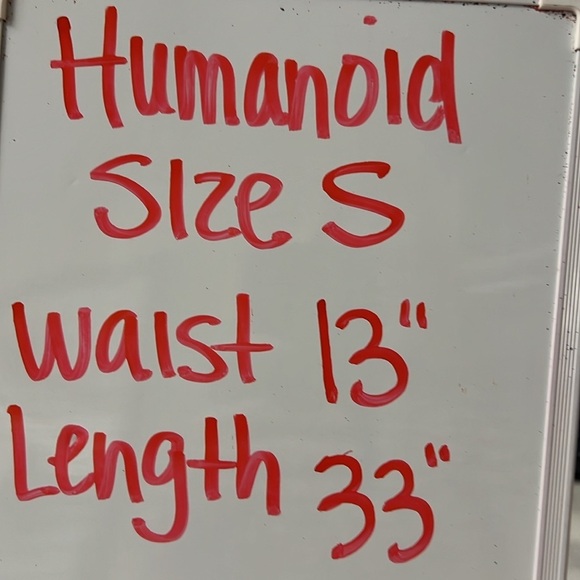 Humanoid
Size S
Waist 13"
Length 33"